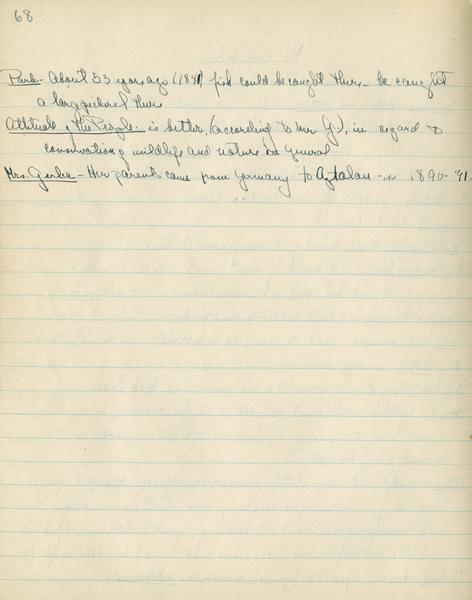 68
Park - About 55 years ago (1881) fish could be caught there - he caught
a large pickerel there.
Attitude of the People - is better, (according to Mr G), in regard to
conservation of wildlife and nature in general.
Mrs. Gerke - Her parents came from Germany to Aztalan - in 1890-'91.